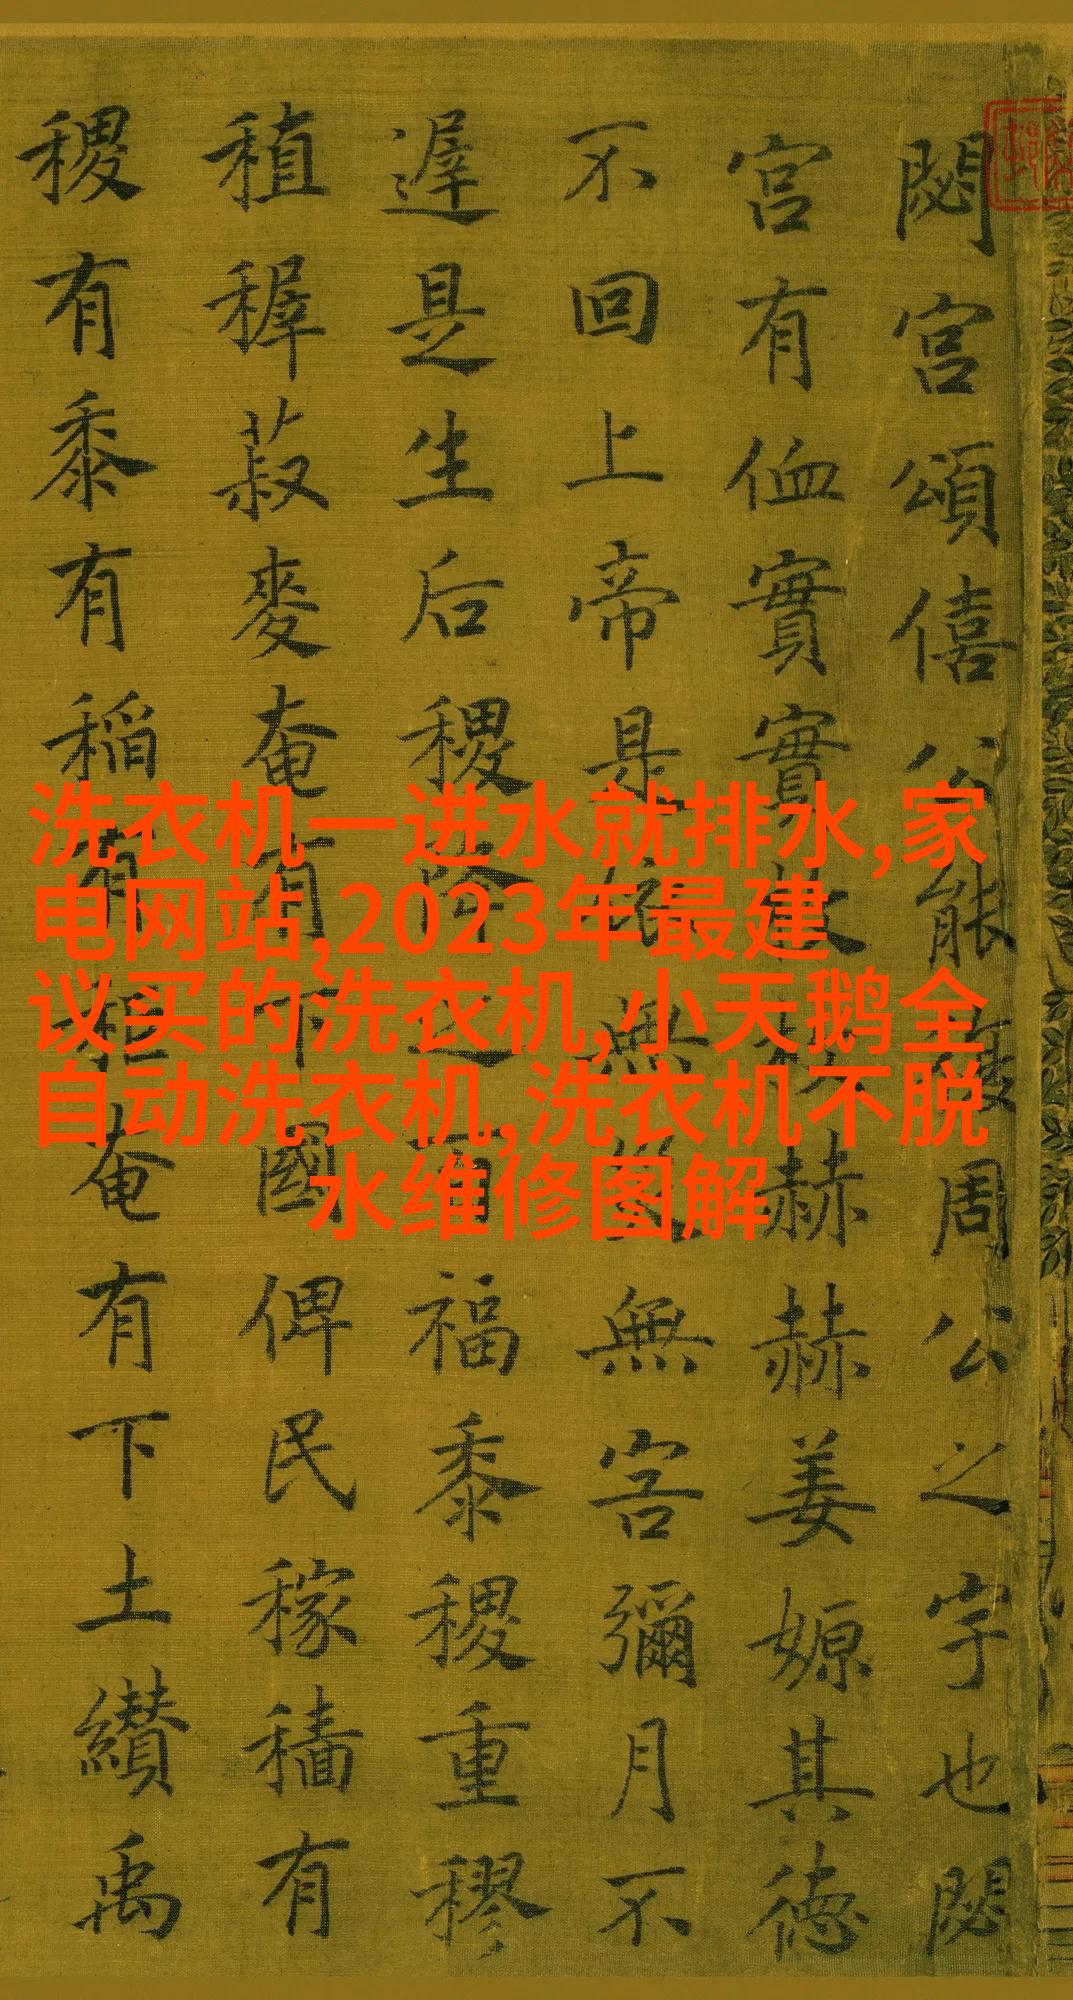 閟宮頌僖公能復周公之宇也閟
宮有侐實實枚枚赫赫姜嫄其德
不回上帝是依無災無害彌月不
遲是生后稷降之百福黍稷重穋
稙稺菽麥奄有下國俾民稼穡有
稷有黍有稻有秬奄有下土纘禹
洗衣机一进水就排水,家
电网站,2023年最建
议买的洗衣机,小天鹅全
自动洗衣机,洗衣机不脱
水维修图解